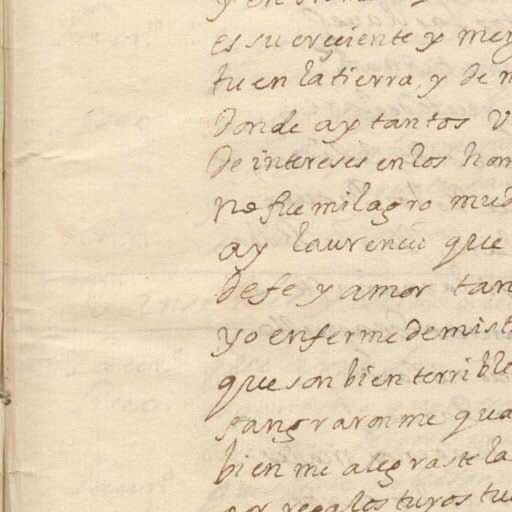 y en
es su creciente y men
tu en la tierra, y de m
donde ay tantos
de intereses en los hom
no fue milagro mud
ay laurencio que
de fe y amor tan
yo enferme de mis t
que son bien terrible
sangraronme qua
bien me alegraste la
por regalos tuyos tu